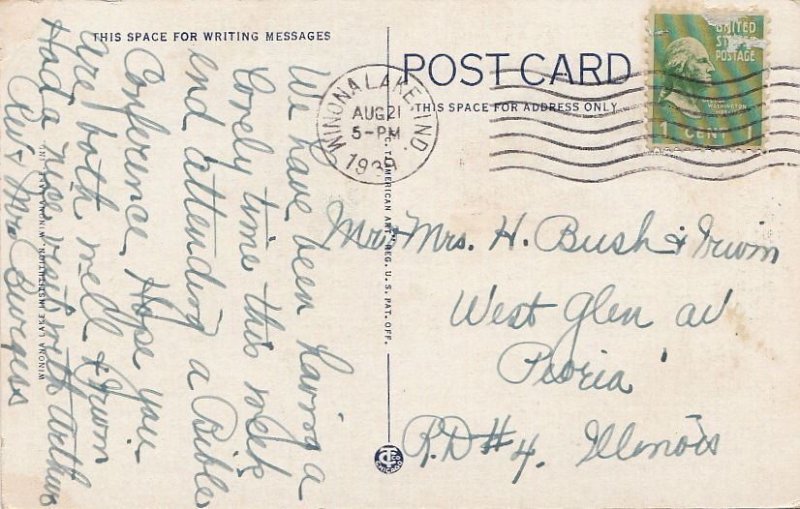 THIS SPACE FOR WRITING MESSAGES
We have been having a
lovely time this week
end attending a Bible
Conference. Hope you
are both well & Irwin
Had a nice visit with Arthurs
Rev & Mrs Burgess
WINONA LAKE INSTITUTION, WINONA LAKE, IND.
C. T. AMERICAN ART REG. U. S. PAT. OFF.
POST CARD
THIS SPACE FOR ADDRESS ONLY
WINONA LAKE, IND.
AUG 21
5-PM
1939
UNITED
STATES
POSTAGE
GEORGE
WASHINGTON
1 CENT 1
Mr & Mrs. H. Bush & Irwin
West Glen av
Peoria
R.D #4. Illinois
CHICAGO